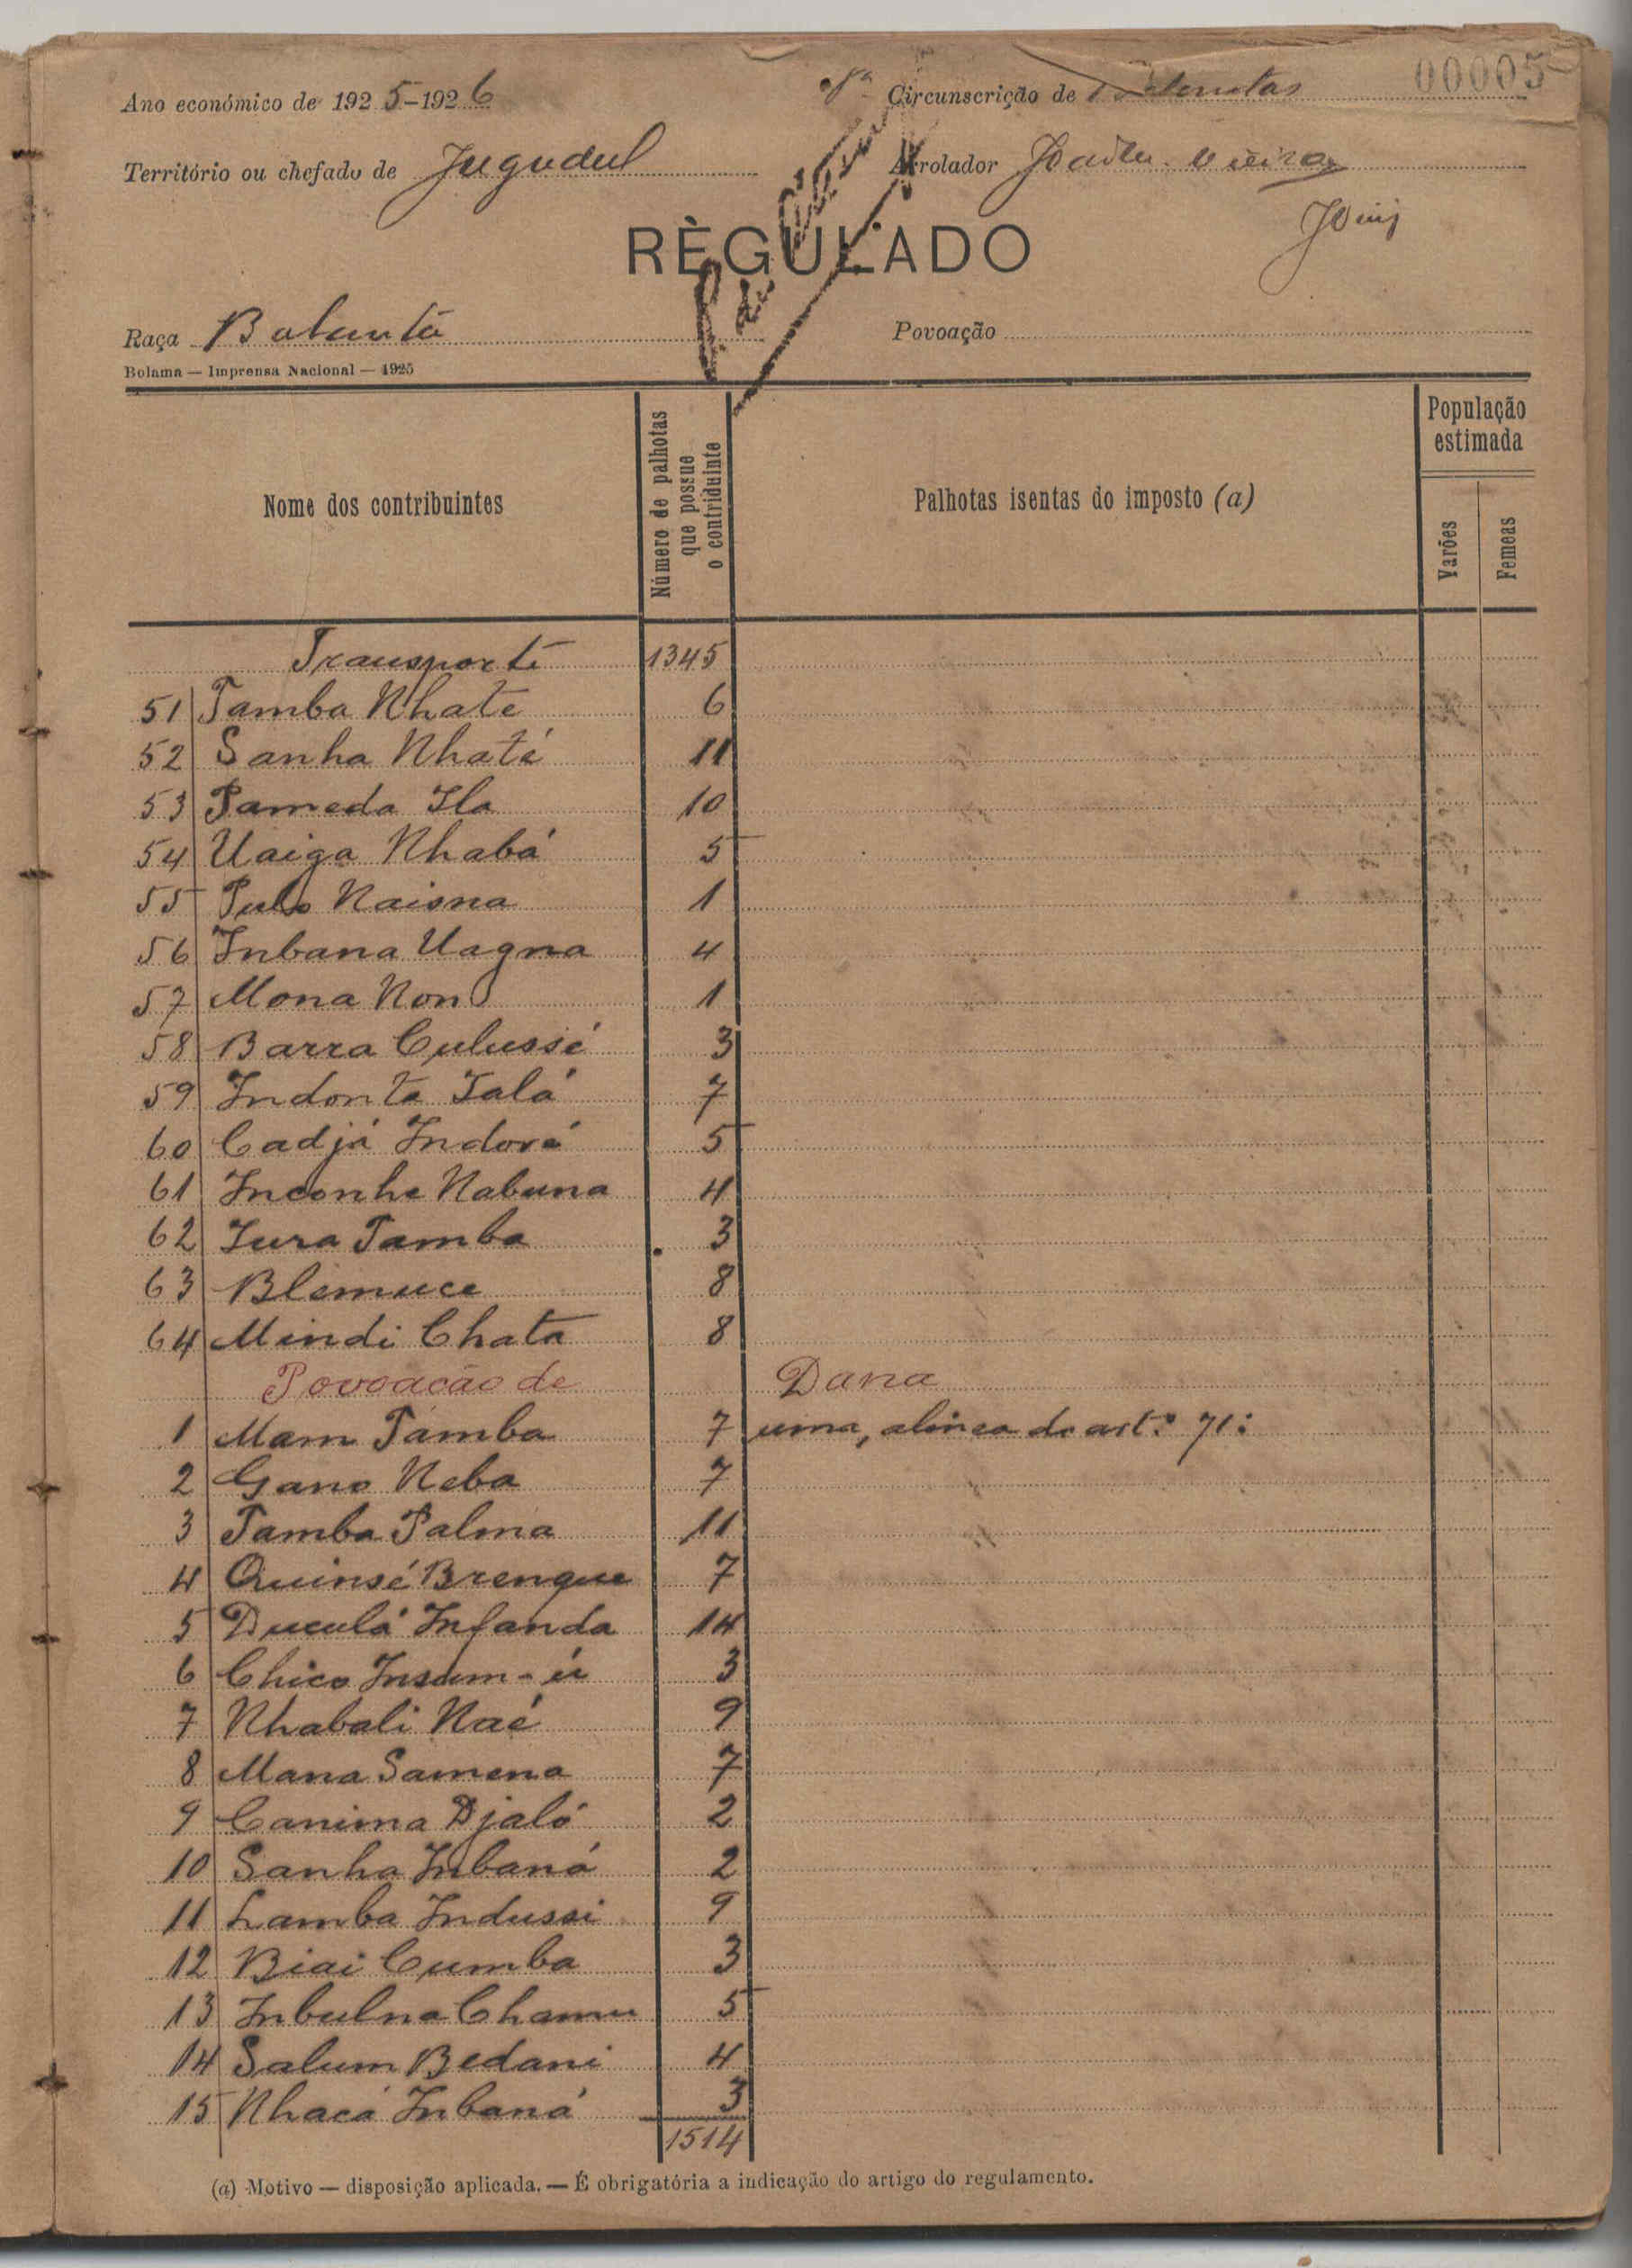 00005
Ano económico de 1925-1926
Circunscrição de
Território ou chefado de Jugudul
Arrolador Vieira
RÈGULADO
Raça Balanta
Povoação
Bolama — Imprensa Nacional — 1925
Nome dos contribuintes
Número de palhotas que possue o contriduinte
Palhotas isentas do imposto (a)
População estimada
Varões
Femeas
Transporte 1345
51 Tamba Nhate 6
52 Sanha Nhaté 11
53 Pameda Ila 10
54 Uaiga Nhabá 5
55 Pulo Naisna 1
56 Inbana Uagna 4
57 Mona Non 1
58 Barra Culussé 3
59 Indonta Ialá 7
60 Cadjá Indoré 5
61 Inconhe Nabuna 4
62 Iura Tamba 3
63 Blemuce 8
64 Mindi Chata 8
Povoacão de Dana
1 Mam Tamba 7 uma, alinea do art.º 71:
2 Gano Neba 7
3 Tamba Palma 11
4 Quinsé Brengue 7
5 Duculá Infanda 14
6 Chico 3
7 Nhabali Naé 9
8 Mana Samena 7
9 Canima Djaló 2
10 Sanha Inbaná 2
11 Lamba Indussi 9
12 Biai Cumba 3
13 Inbulna 5
14 Salum Bedani 4
15 Nhacá Inbaná 3
1514
(a) Motivo — disposição aplicada. — É obrigatória a indicação do artigo do regulamento.